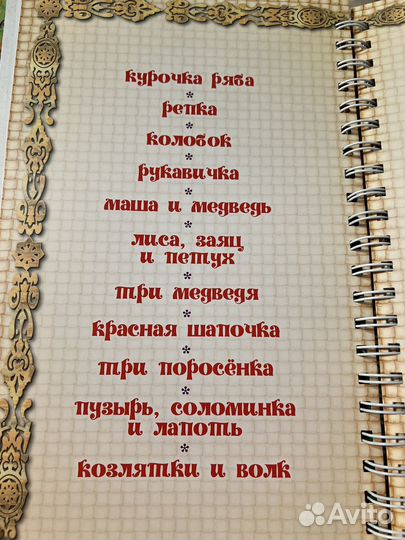 курочка ряба
*
репка
*
колобок
*
рукавичка
*
маша и медведь
*
лиса, заяц
и петух
*
три медведя
*
красная шапочка
*
три поросёнка
*
пузырь, соломинка
и лапоть
*
козлятки и волк
Avito